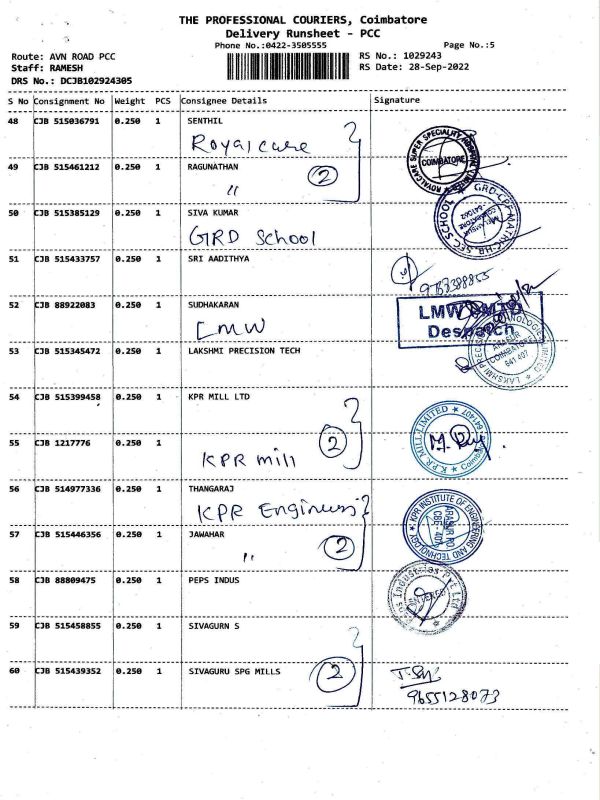 THE PROFESSIONAL COURIERS, Coimbatore
Delivery Runsheet - PCC
Phone No.:0422-3505555 Page No.:5
Route: AVN ROAD PCC RS No.: 1029243
Staff: RAMESH RS Date: 28-Sep-2022
DRS No.: DCJB102924305
S No Consignment No Weight PCS Consignee Details Signature
48 CJB 515036791 0.250 1 SENTHIL
Royalcare
ROYALCARE SUPER SPECIALITY COIMBATORE
49 CJB 515461212 0.250 1 RAGUNATHAN
" 2
50 CJB 515385129 0.250 1 SIVA KUMAR
GRD School
GRD-CPF MATRIC HR SEC SCHOOL COIMBATORE
51 CJB 515433757 0.250 1 SRI AADITHYA
52 CJB 88922083 0.250 1 SUDHAKARAN
LMW
LMW
Despatch
53 CJB 515345472 0.250 1 LAKSHMI PRECISION TECH
COIMBATORE
641 407
54 CJB 515399458 0.250 1 KPR MILL LTD
55 CJB 1217776 0.250 1
KPR mill 2
K.P.R. MILL LIMITED
56 CJB 514977336 0.250 1 THANGARAJ
KPR Engineers
KPR INSTITUTE OF ENGINEERING AND TECHNOLOGY
57 CJB 515446356 0.250 1 JAWAHAR
" 2
58 CJB 88809475 0.250 1 PEPS INDUS
Peps Industries Pvt Ltd
59 CJB 515458855 0.250 1 SIVAGURN S
60 CJB 515439352 0.250 1 SIVAGURU SPG MILLS
2
9655128073